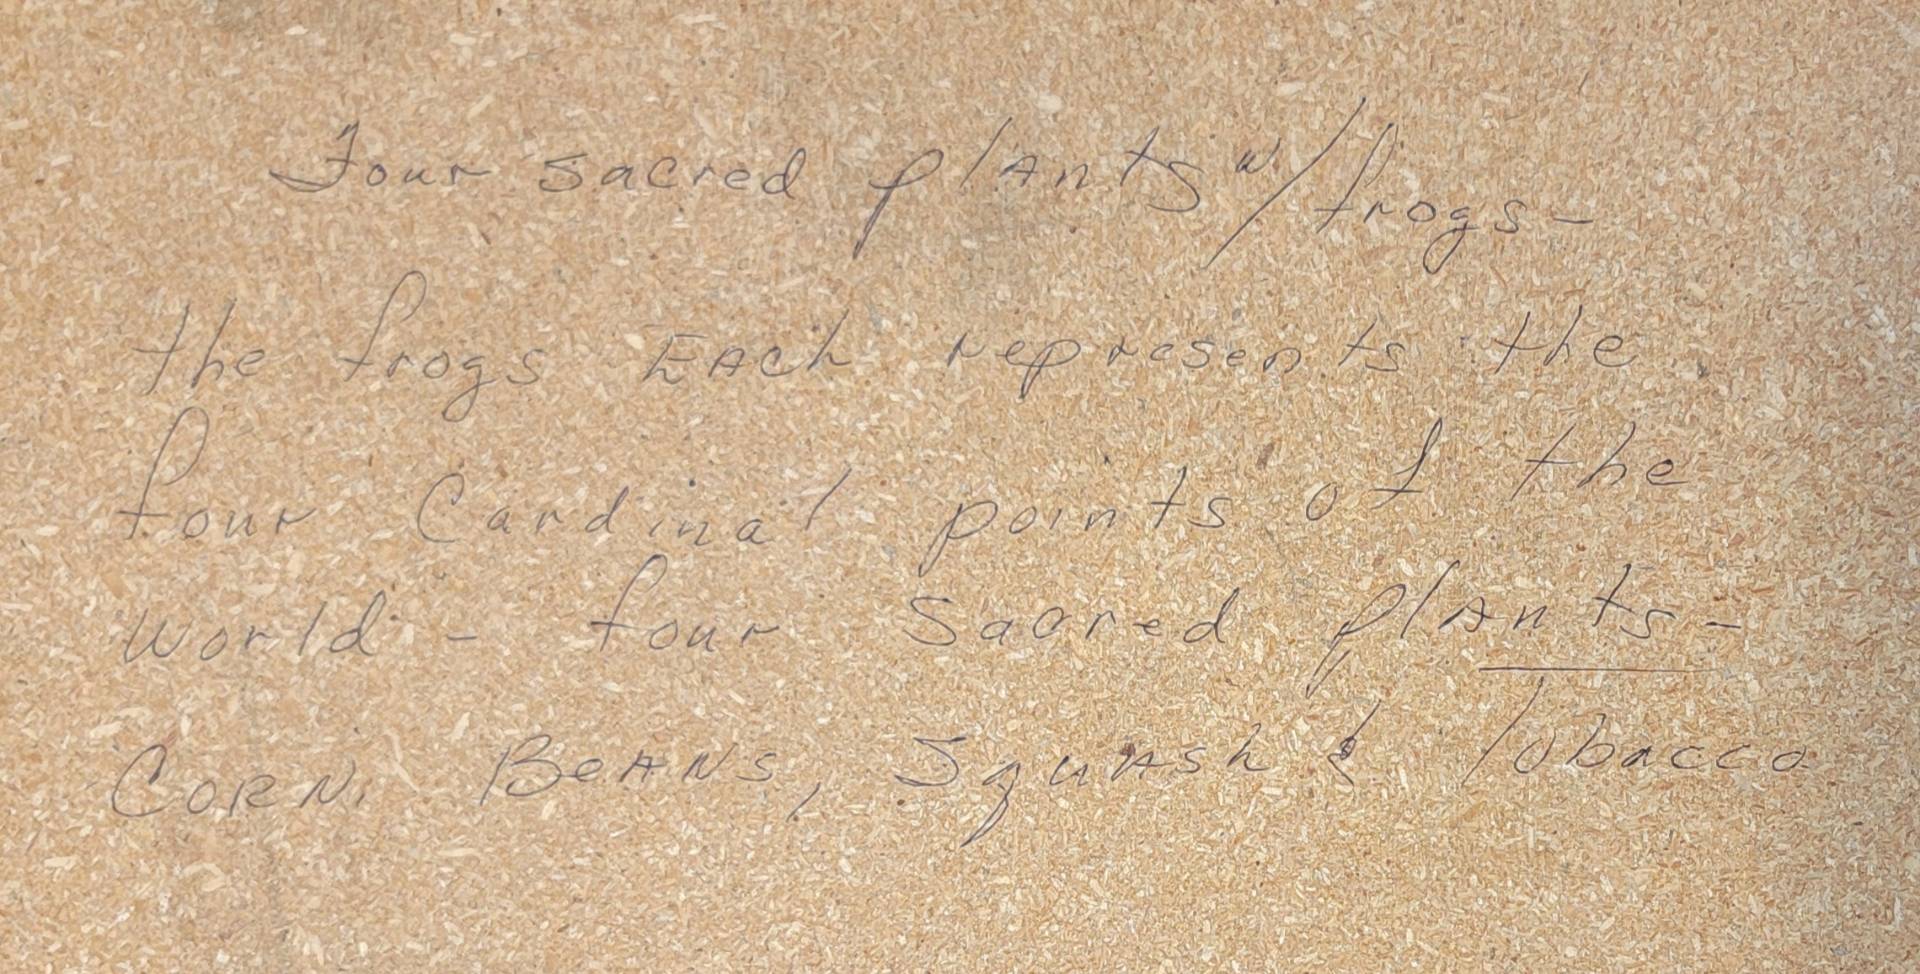 Four sacred plants w/ frogs-
the frogs EAch represents the
four Cardinal points of the
World - four Sacred plants-
CORN, BeANs, SquAsh & Tobacco